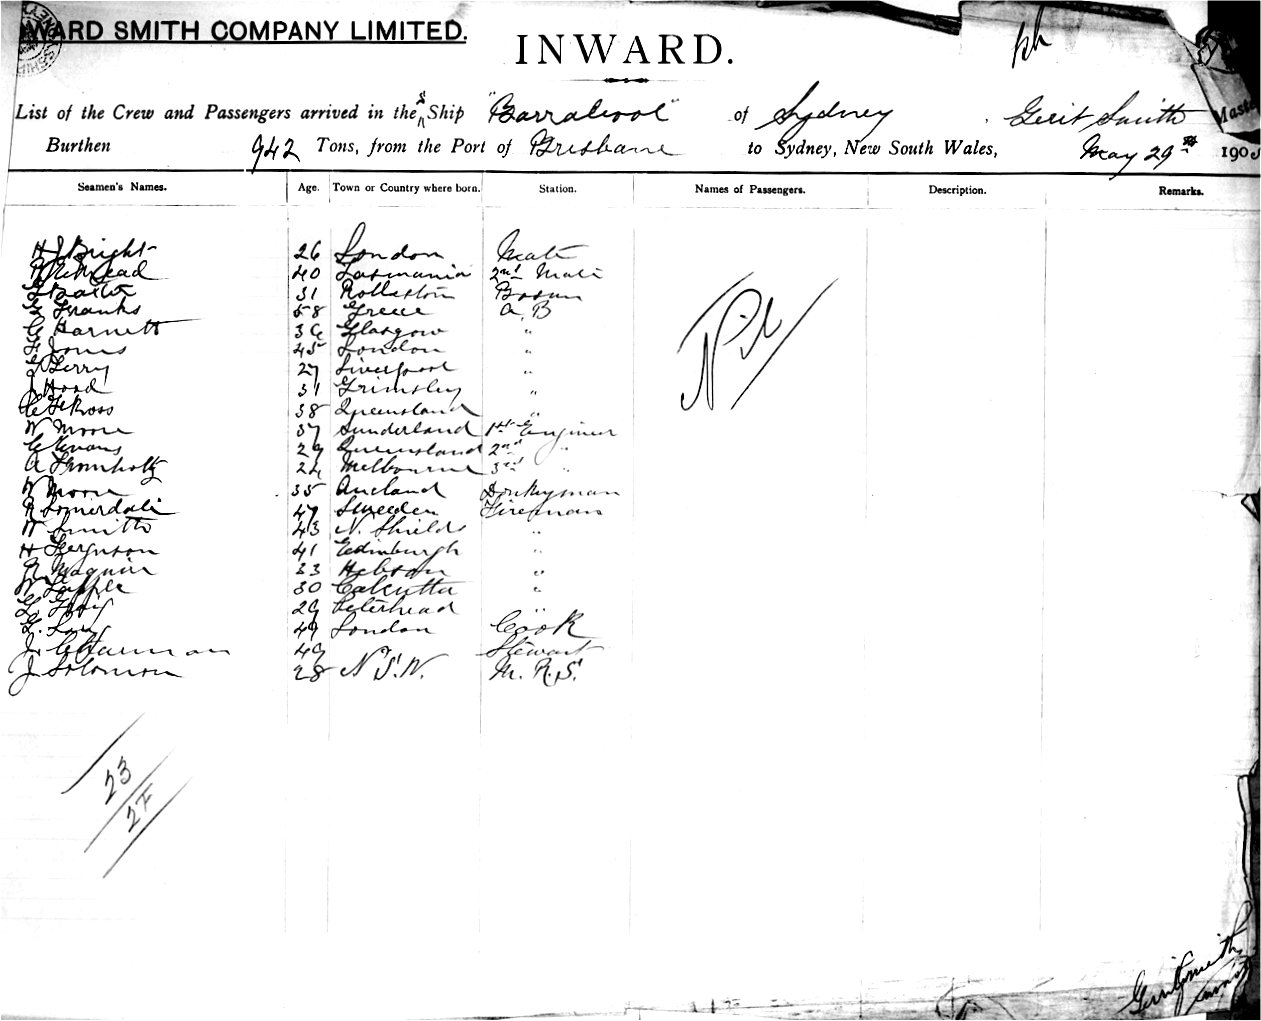 WARD SMITH COMPANY LIMITED.
INWARD.
List of the Crew and Passengers arrived in the S Ship "Barrabool" of Sydney Gerit Smith Maste
Burthen 942 Tons, from the Port of Brisbane to Sydney, New South Wales, May 29th 190
Seamen's Names. Age. Town or Country where born. Station. Names of Passengers. Description. Remarks.
H J Bright 26 London Mate
40 Tasmania 2nd Mate
Baxter 31 Rolleston Bosun
G Franks 58 Greece A.B
C Harnett 36 Glasgow "
Jones 45 London "
Berry 27 Liverpool "
J Hood 31 Grimsley "
Ross 38 Queensland "
W Moore 37 Sunderland 1st Engineer
C Evans 29 Queensland 2nd "
A Thomholtz 24 Melbourne 3rd "
W Moore 35 Aucland Donkeyman
R Somerdale 47 Sweeden Fireman
W Smith 43 N. Shields "
H Ferguson 41 Edinburgh "
Maguire 33 Hobson "
W 30 Calcutta "
G. 29 Peterhead "
G. 49 London Cook
J. Charman 49 Stewart
J Solomon 28 N.S.W. M.R.S.
Nil
23
27
Gerit Smith